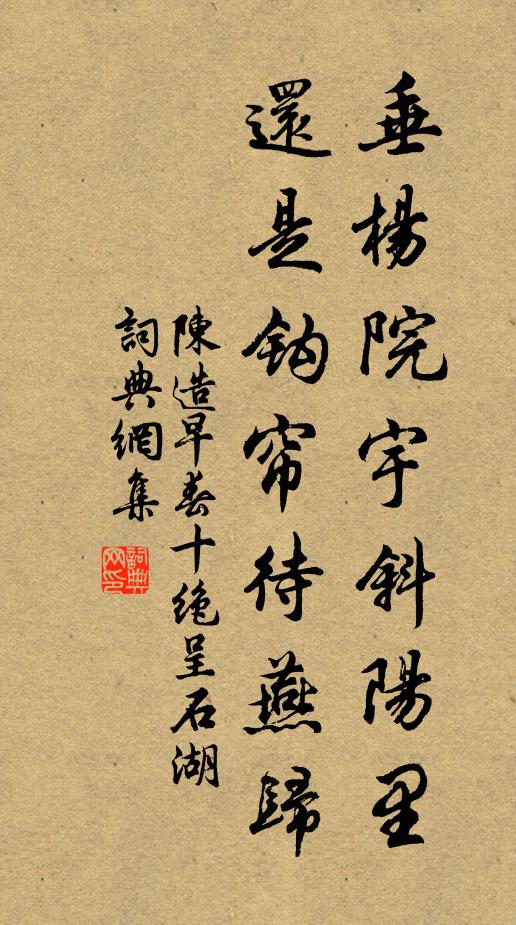 垂楊院宇斜陽里
還是鈎帘待燕歸
陳造早春十绝呈石湖
詞典網集
詞典网印